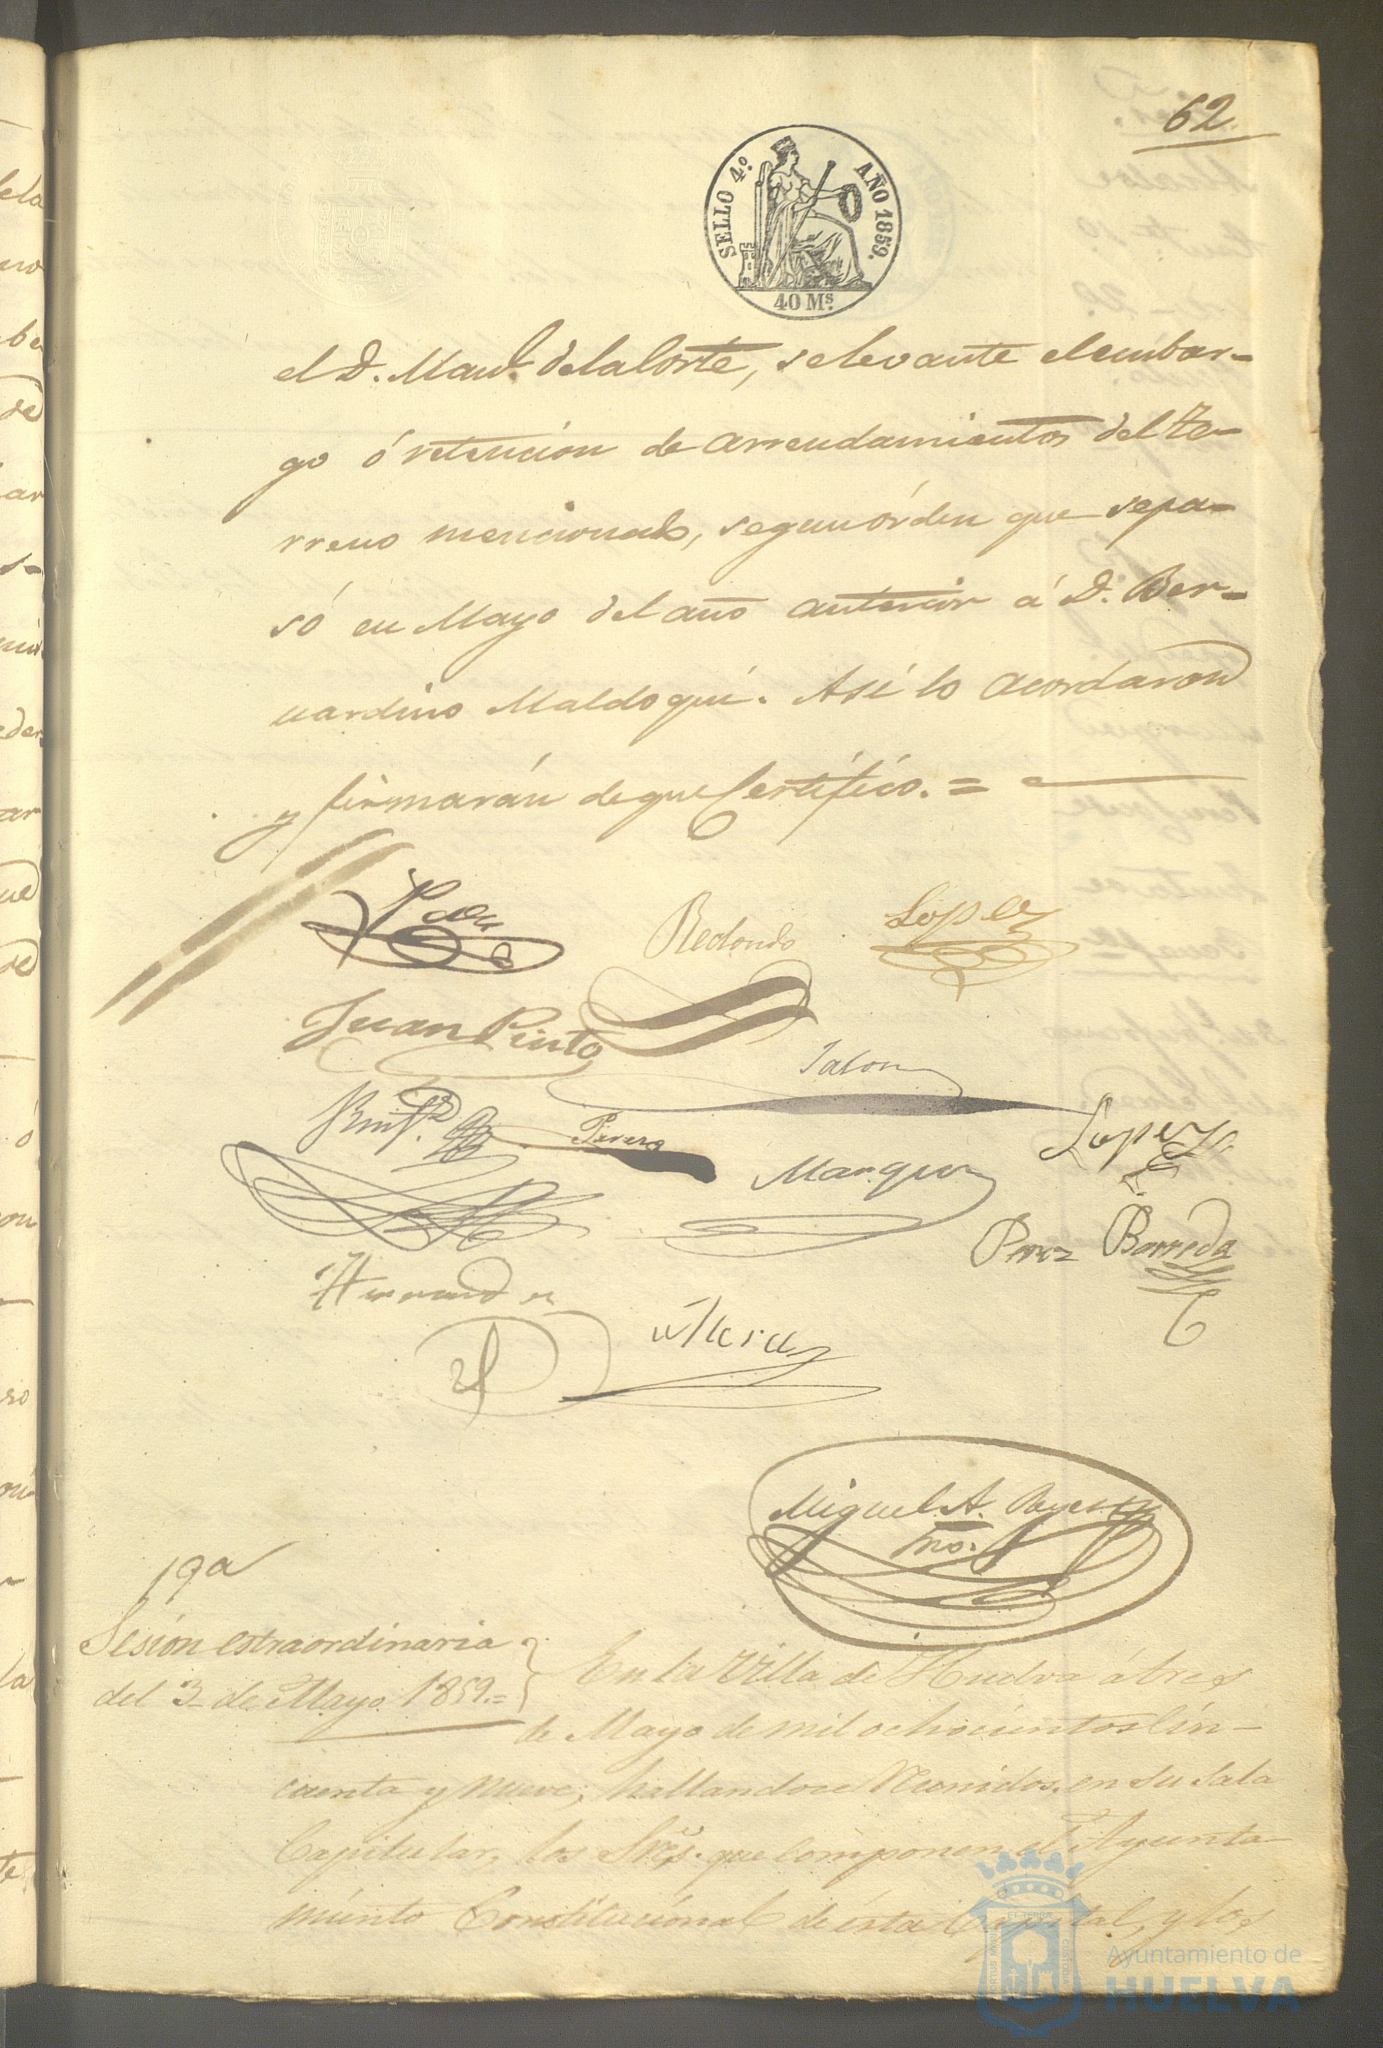 62
SELLO 4º. AÑO 1859.
40 Ms.
el D. Manl. de la Corte, se levante el embar-
go ó retencion de arrendamientos del te-
rreno mencionado, segun órden que se pa-
só en Mayo del año anterior á D. Ber-
nardino Maldoqui. Así lo acordaron
y firmarán de que Certífico. =
Redondo
Lopez
Juan Pinto
Jalon
Perez
Lopez
Marquez
Perez Barreda
Hernandez
Miguel A. Reyes
Srio.
19a
Sesión estraordinaria
del 3 de Mayo 1859.=
En la Villa de Huelva á tres
de Mayo de mil ochocientos Cin-
cuenta y nueve, hallandose Reunidos en su Sala
Capitular, los Sres. que componen el Ayunta-
miento Constitucional de ésta Capital, y los
Ayuntamiento de
HUELVA